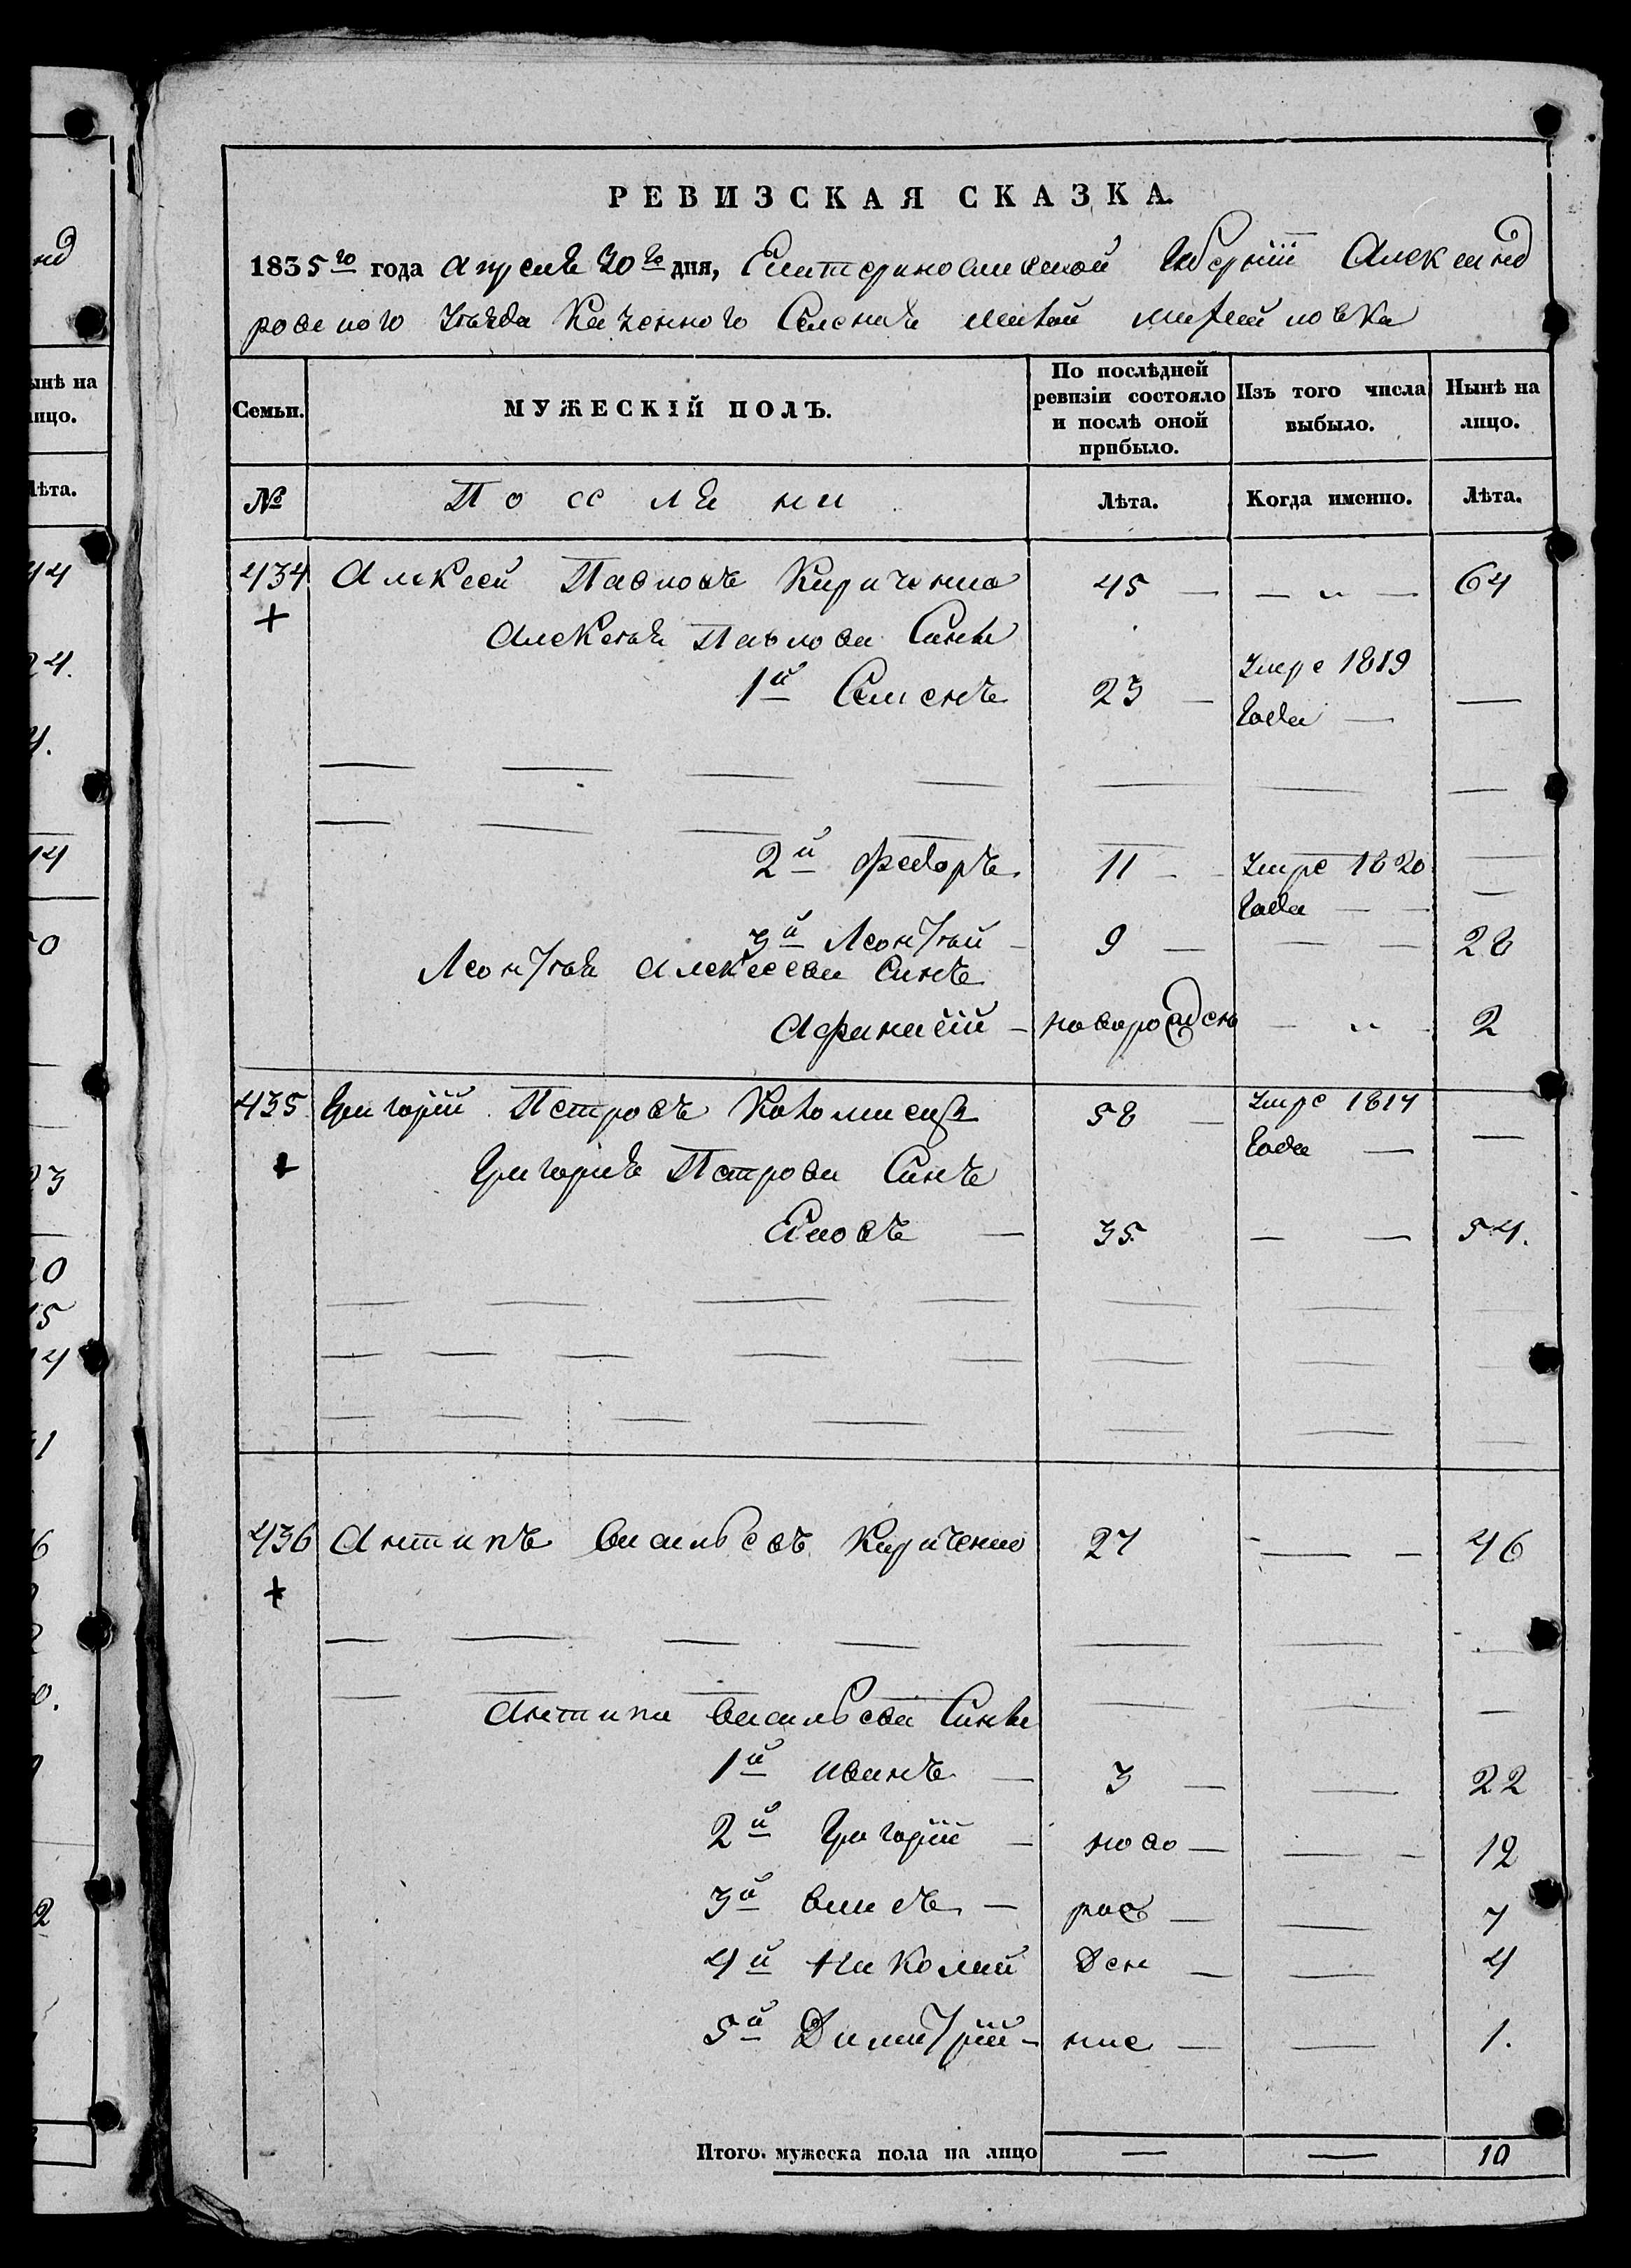 РЕВИЗСКАЯ СКАЗКА.
1835го года апреля 30го дня, Екатеринославской Губернiи Александ
ровского уезда Казенного Селенiя малой михайловка
Семьи. МУЖЕСКIЙ ПОЛЪ. По послѣдней ревизiи состояло и послѣ оной прибыло. Изъ того числа выбыло. Нынѣ на лицо.
№ Лѣта. Когда именно. Лѣта.
434 Алексей Павловъ Кириченко 45 — — „ — 64
Алексея Павлова Сыны
1й Семенъ 23 — Умре 1819 года — —
2й Федоръ 11 — Умре 1820 года — —
3й Леонтий — 9 — — — 28
Леонтия Алексеева Сынъ
Афанасiй — новорожден — „ — 2
435 Григорiй Петровъ Коломиецъ 58 — Умре 1817 года — —
Григория Петрова Сынъ
Яковъ — 35 — — 54.
436 Антипъ Васильевъ Кириченко 27 — — — 46
Антипа Васильева Сыны
1й Иванъ — 3 — — 22
2й Григорiй — ново — — — 12
3й — рож — — 7
4й Николай ден — — 4
5й Димитрiй — ные — — 1.
Итого. мужеска пола на лицо — — 10
44
24.
4.
14
0
23